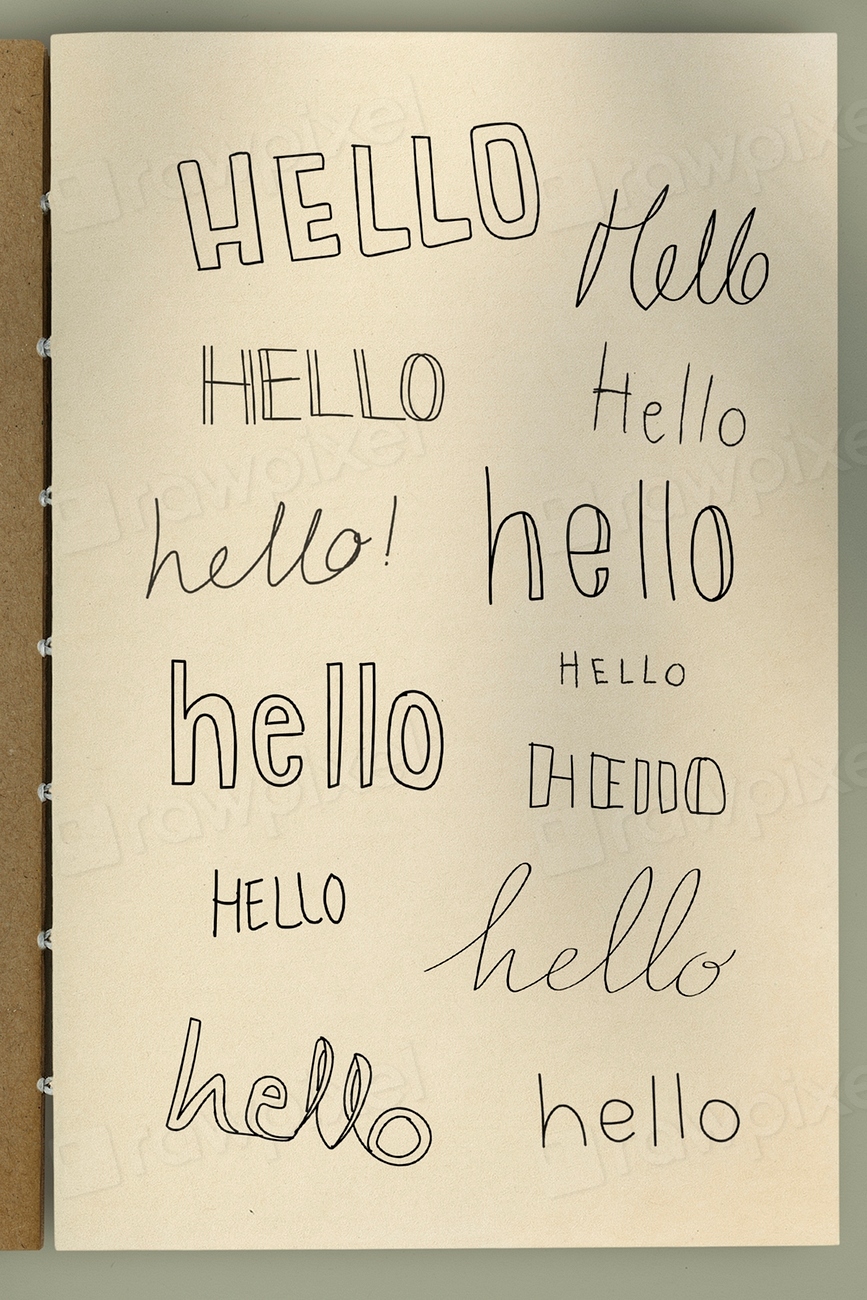 HELLO
Hello
HELLO
Hello
hello!
hello
HELLO
hello
HELLO
HELLO
hello
hello
hello
rawpixel
rawpixel
rawpixel
rawpixel
rawpixel
rawpixel
rawpixel
rawpixel